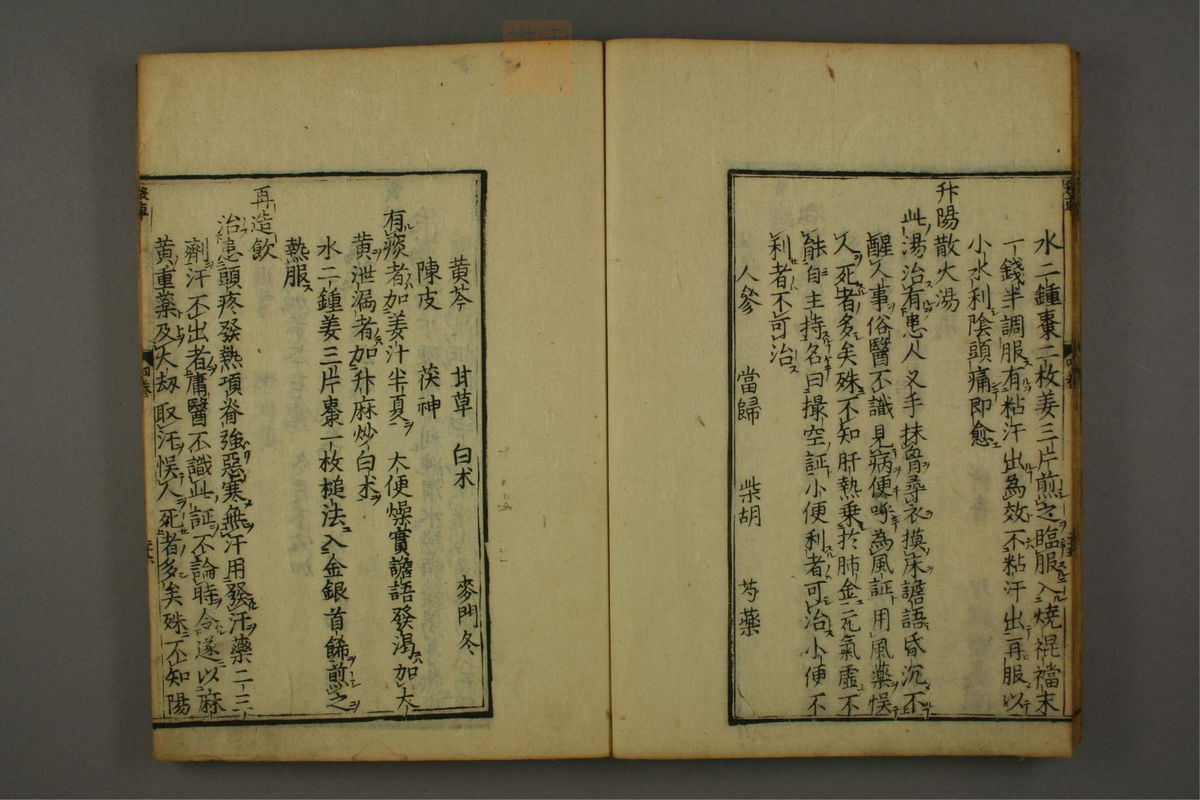 水二鍾棗二枚姜三片煎之臨服入燒裩襠末
一錢半調服有粘汗出為效不粘汗出再服以
小水利陰頭痛即愈
升陽散火湯
此湯治有患人叉手抹胷尋衣摸床譫語昏沉不
醒人事俗醫不識見病便呼為風証用風藥悞
人死者多矣殊不知肝熱乗於肺金元氣虛不
能自主持名曰撮空証小便利者可治小便不
利者不可治
人參 當歸 柴胡 芍藥
黄芩 甘草 白朮 麥門冬
陳皮 茯神
有痰者加姜汁半夏 大便燥實譫語發渴加大
黄泄漏者加升麻炒白朮
水二鍾姜三片棗一枚槌法入金銀首餙煎之
熱服
再造飲
治患頭疼發熱項脊強惡寒無汗用發汗藥二三
劑汗不出者庸醫不識此証不論時令遂以麻
黄重藥及大刼取汗悞人死者多矣殊不知陽